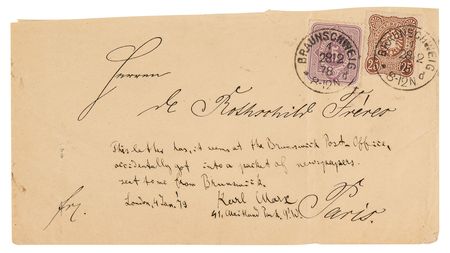 BRAUNSCHWEIG
2812
78
8-12N
d
BRAUNSCHWEIG
8-12N
d
25 25
Herren
de Rothschild Frères
This letter has, it seems at the Brunswick Post-Office,
accidentally got into a packet of newspapers
sent to me from Brunswick.
London, 4 Jan. 79 Karl Marx
41, Maitland Park, N.W.
frz. Paris.